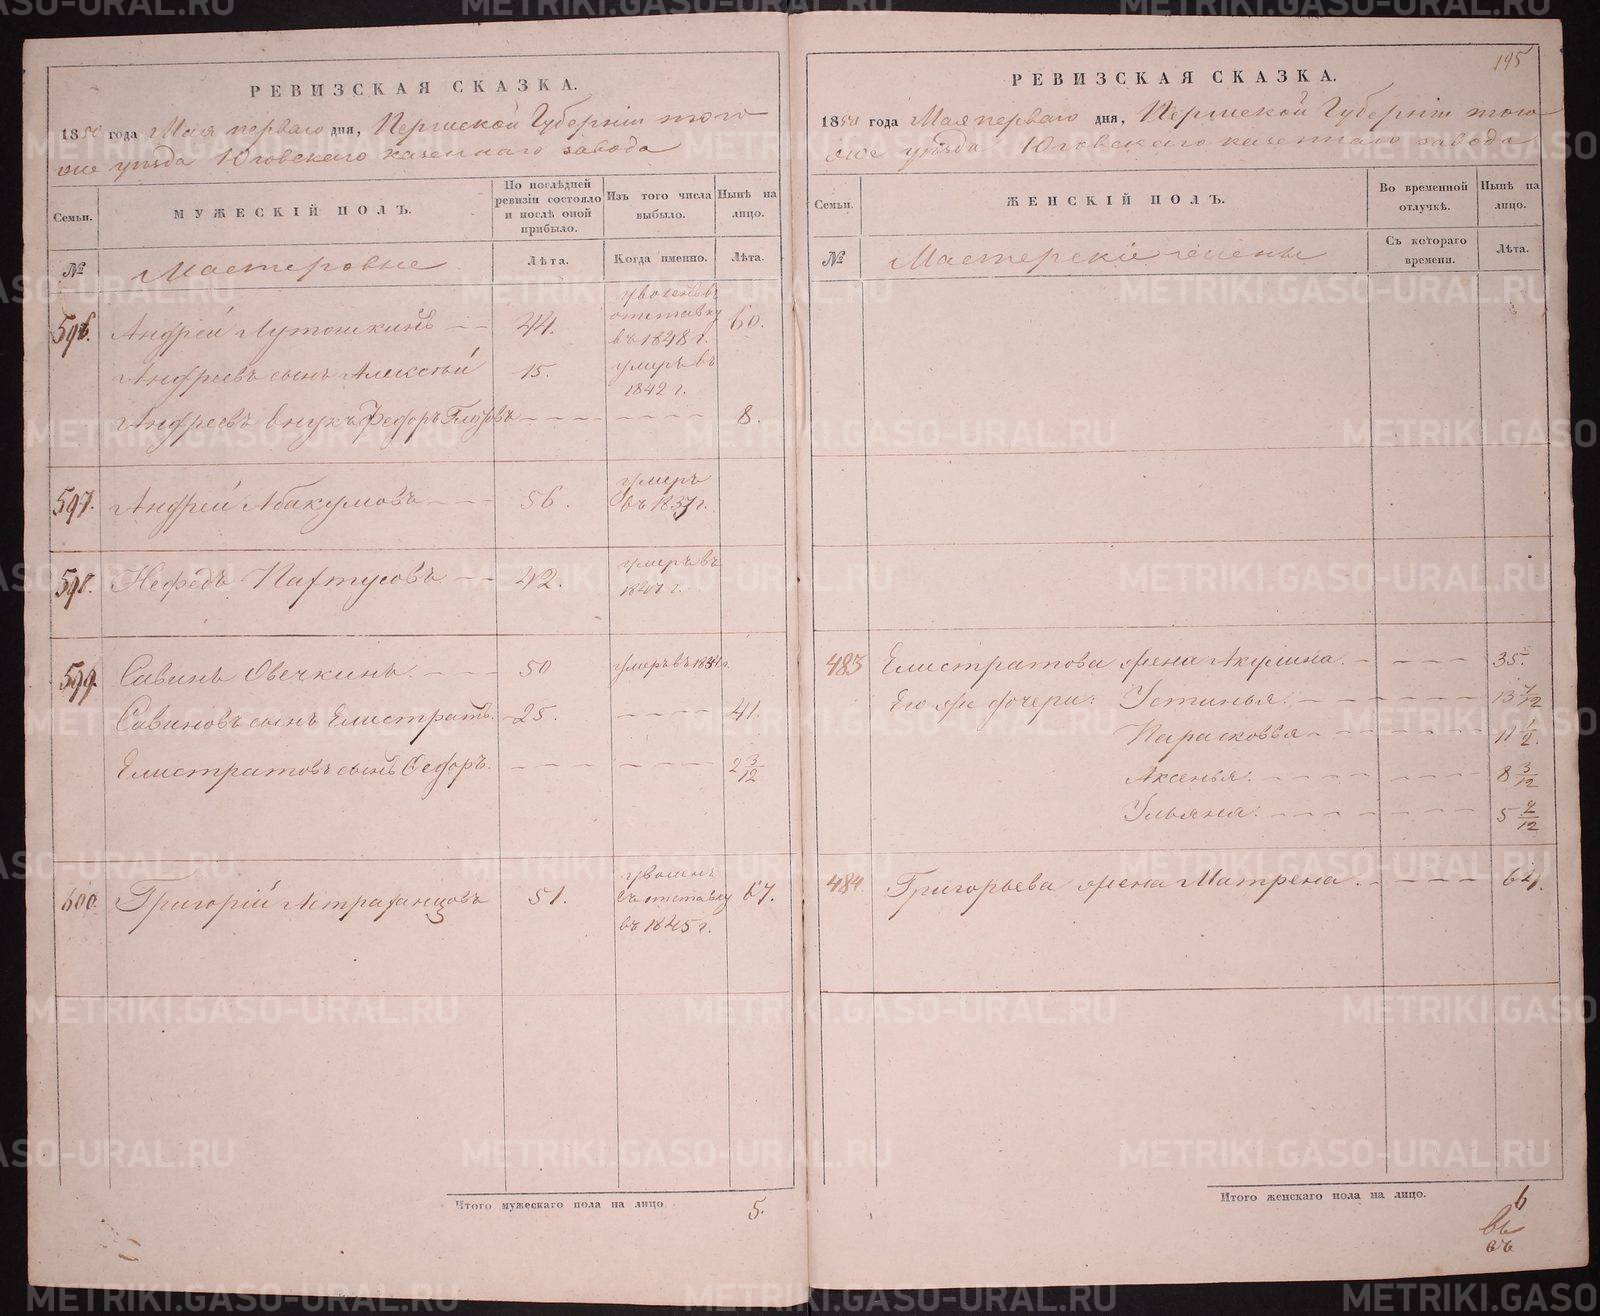 РЕВИЗСКАЯ СКАЗКА.
1850 года Мая перваго дня, Пермской Губерніи того
же уѣзда Юговскаго казеннаго завода
Семьи.
МУЖЕСКІЙ ПОЛЪ.
По послѣдней ревизіи состояло и послѣ оной прибыло.
Изъ того числа выбыло.
Нынѣ на лицо.
№
Мастеровые
Лѣта.
Когда именно.
Лѣта.
596. Андрей Лутошкинъ 44. уволенъ въ отставку въ 1848 г. 60.
Андреевъ сынъ Алексѣй 15. умеръ въ 1842 г.
Андреевъ внукъ Федоръ 8.
597. Андрей Абакумовъ 56. умеръ въ 1837 г.
598. Нефедъ Партусовъ 42. умеръ въ 1847 г.
599. Савинъ Овечкинъ 50 умеръ въ
Савиновъ сынъ Елистратъ. 25. 41.
Елистратовъ сынъ Федоръ. 2 3/12
600. Григорій Астраханцовъ 51. уволенъ въ отставку въ 1845 г. 67.
Итого мужескаго пола на лицо 5.
195
РЕВИЗСКАЯ СКАЗКА.
1850 года Мая перваго дня, Пермской Губерніи того
же уѣзда Юговскаго казеннаго завода
Семьи.
ЖЕНСКІЙ ПОЛЪ.
Во временной отлучкѣ.
Нынѣ на лицо.
№
Мастерскіе жены
Съ котораго времени.
Лѣта.
483 Елистратова жена Акулина. 35.
Его же дочери: Устинья. 13 7/12
Парасковья 11 1/2.
Аксенья. 8 3/12
Ульяна. 5
484. Григорьева жена Матрена. 64.
Итого женскаго пола на лицо. 6
METRIKI.GASO-URAL.RU